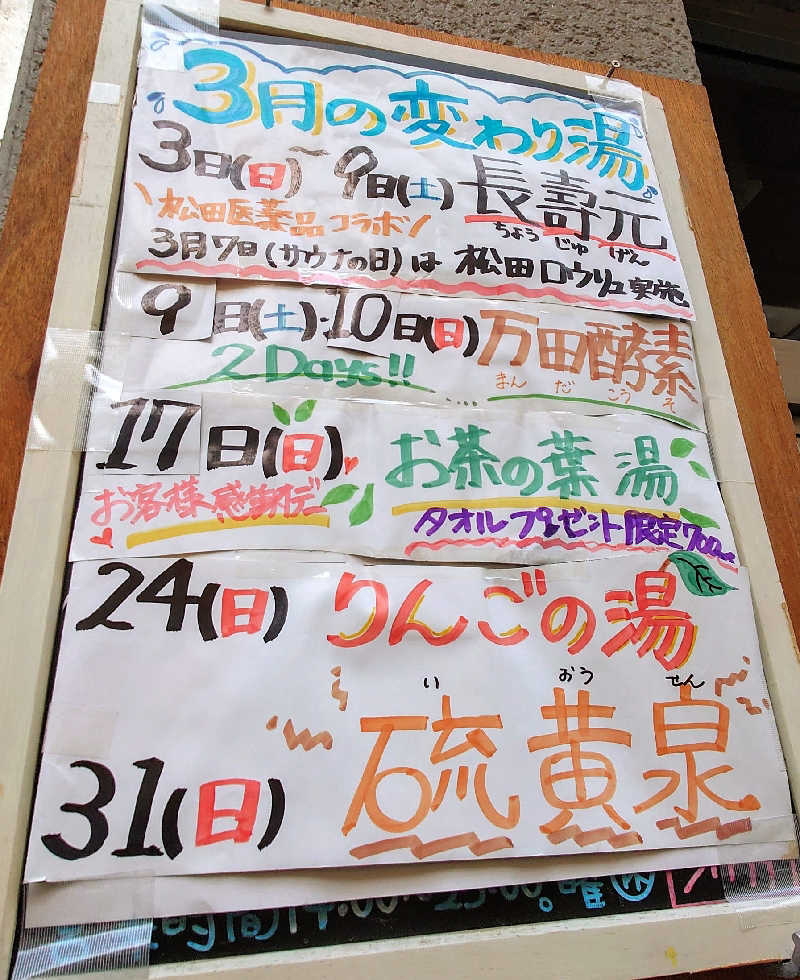 3月の変わり湯
3日(日)~9日(土) 長壽元
ちょう じゅ げん
\松田医薬品コラボ/
3月7日(サウナの日)は 松田ロウリュ実施
9日(土)・10日(日) 万田酵素
まん だ こう そ
2 Days!!
17日(日) お茶の葉湯
お客様感謝デー
タオルプレゼント限定700名
24(日) りんごの湯
い おう せん
31(日) 硫黄泉
時間14:00〜23:00。曜